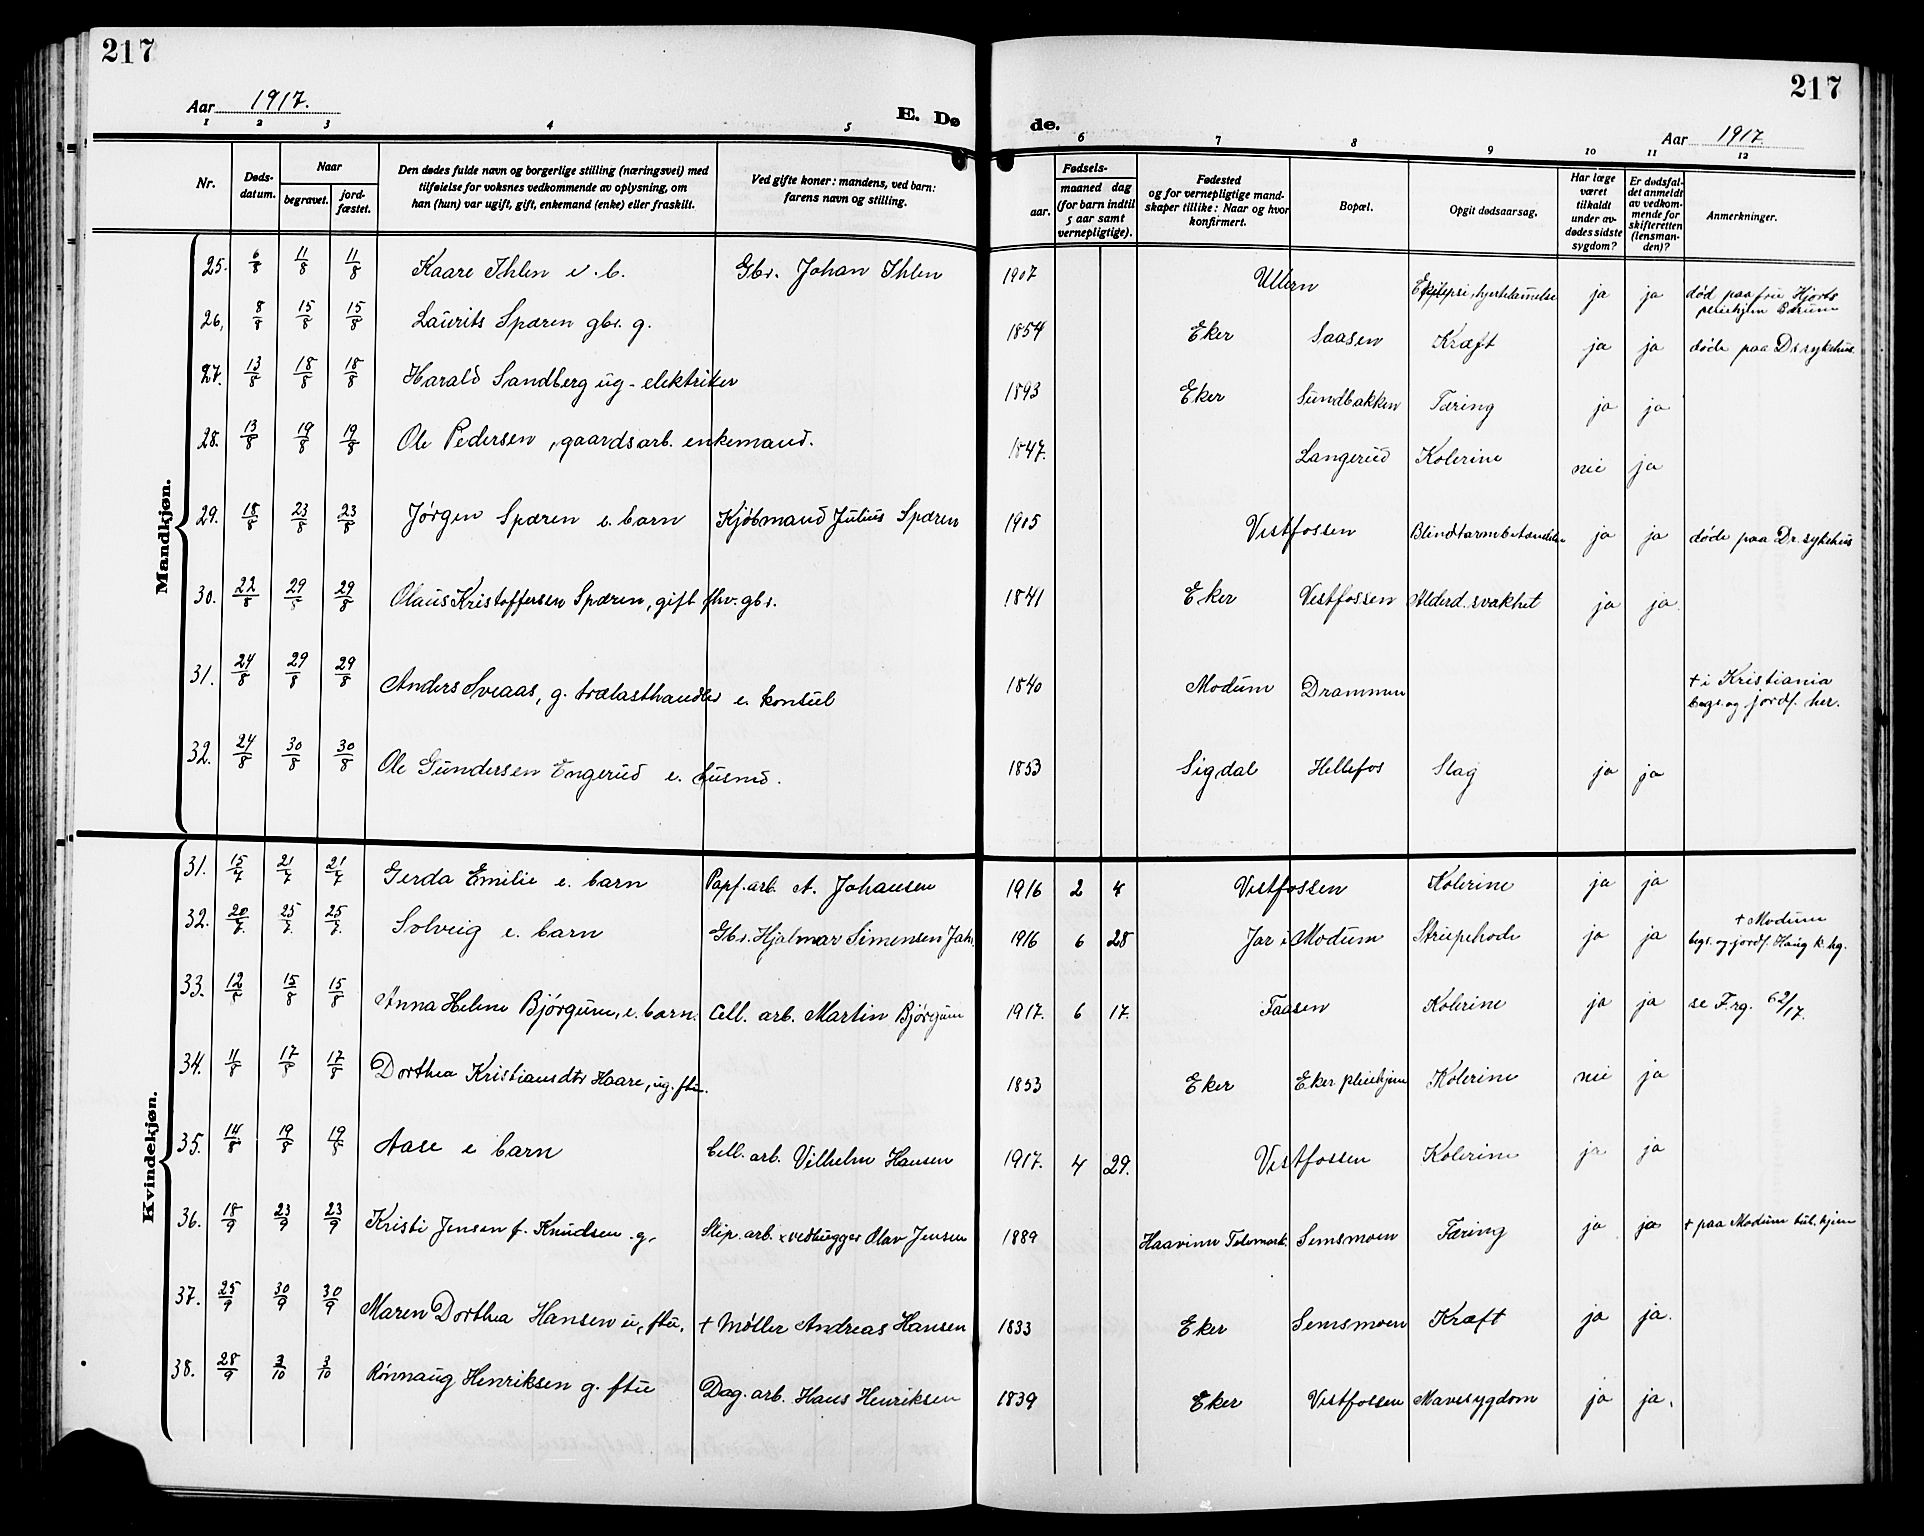 217
217
Aar 1917.
E. Dø
de.
Aar 1917
1 2 3 4 5 6 7 8 9 10 11 12
Nr.
Dødsdatum.
Naar
begravet.
jordfæstet.
Den dødes fulde navn og borgerlige stilling (næringsvei) med
tilføielse for voksnes vedkommende av oplysning, om
han (hun) var ugift, gift, enkemand (enke) eller fraskilt.
Ved gifte koner: mandens, ved barn:
farens navn og stilling.
Fødsels-
aar.
maaned dag
(for barn indtil
5 aar samt
vernepligtige).
Fødested
og for vernepligtige mand-
skaper tillike: Naar og hvor
konfirmert.
Bopæl.
Opgit dødsaarsag.
Har læge
været
tilkaldt
under av-
dødes sidste
sygdom?
Er dødsfal-
det anmeldt
av vedkom-
mende for
skifteretten
(lensman-
den)?
Anmerkninger.
Mandkjøn.
25. 6/8 11/8 11/8 Kaare Ihlen e. b. Gbr. Johan Ihlen 1907 Ullern Epilepsi, ja ja død paa fru Hjorts pleiehjem Bærum
26, 8/8 15/8 15/8 Laurits Spæren gbr. g. 1854 Eker Saasen Kræft ja ja døde paa Dr. sykehus.
27. 13/8 18/8 18/8 Harald Sandberg ug - elektriker 1893 Eker Sundbakken Tæring ja ja
28. 13/8 19/8 19/8 Ole Pedersen, gaardsarb. enkemand. 1847. Langerud Kolerine nei ja
29. 18/8 23/8 23/8 Jørgen Spæren e. barn Kjøbmand Julius Spæren 1905 Vestfossen Blindtarmbetændelse ja ja døde paa Dr. sykehus
30. 22/8 29/8 29/8 Olaus Kristoffersen Spæren, gift fhv. gbr. 1841 Eker Vestfossen Alderd. svakhet ja ja.
31. 24/8 29/8 29/8 Anders Sveaas, g. trælasthandler e. konsul 1840 Modum Drammen + i Kristiania begr. og jordf. her.
32. 24/8 30/8 30/8 Ole Gundersen Engerud e. husmd. 1853 Sigdal Hellefos Slag ja ja
Kvindekjøn.
31. 15/7 21/7 21/7 Gerda Emilie e. barn Papf. arb. A. Johansen 1916 2 4 Vestfossen Kolerine ja ja
32. 20/7. 25/7. 25/7. Solveig e. barn Gbr. Hjalmar Simensen Jahr 1916 6 28 Jar i Modum Strupehode ja ja + Modum begr. og jordf. Haug k. kg.
33. 12/8 15/8 15/8 Anna Helene Bjørgum, e. barn. Cell. arb. Martin Bjørgum 1917. 6 17. Faasen Kolerine ja ja se F. rg. 62/17.
34. 11/8 17/8 17/8 Dorthea Kristiansdtr Haare, ug. ftu. 1853 Eker Eker pleiehjem Kolerine nei ja
35. 14/8 19/8 19/8 Aase e barn Cell. arb. Vilhelm Hansen 1917. 4 29. Vestfossen Kolerine ja ja
36. 18/9 23/9 23/9 Kristi Jensen f. Knudsen g. Slip. arb. x vedhugger Olav Jensen 1889 Haavinn Telemark. Semsmoen Tæring ja ja + paa Modum tub. hjem
37. 25/9 30/9 30/9 Maren Dorthea Hansen e, ftu. + Møller Andreas Hansen 1833 Eker Semsmoen Kræft ja ja.
38. 28/9 3/10 3/10 Rønnaug Henriksen g. ftu Dag. arb. Hans Henriksen 1839 Eker Vestfossen Mavesygdom ja ja.